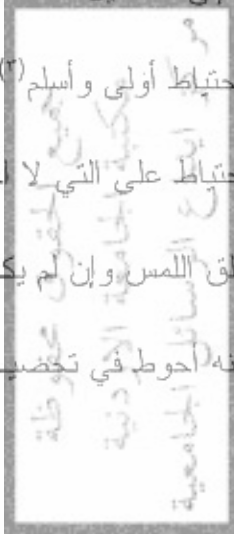 حتياط أولى وأسلم(٢)
حتياط على التي لا
لق اللمس وإن لم يك
نه أحوط في تحضيـ
جميع الحقوق محفوظة
مكتبة الجامعة الاردنية
مركز ايداع الرسائل الجامعية